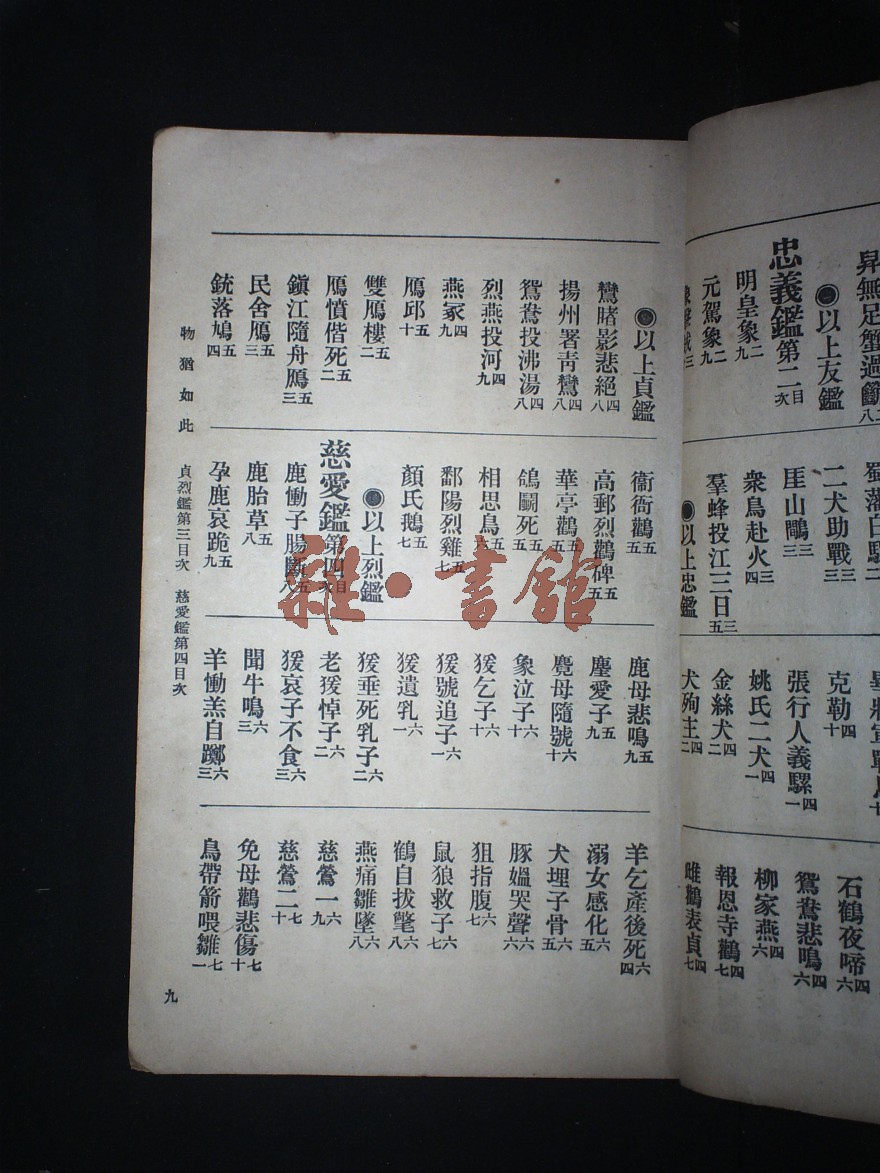 忠義鑑第二目次
●以上友鑑
明皇象二九
元駕象二九
二犬助戰三三
厓山鷳三三
衆鳥赴火三四
羣蜂投江三日三五
●以上忠鑑
克勒四十
張行人義騾四一
姚氏二犬四一
金絲犬四二
犬殉主四二
石鶴夜啼四六
鴛鴦悲鳴四六
柳家燕四六
報恩寺鸛四七
雌鸛表貞四七
●以上貞鑑
鸞睹影悲絕四八
揚州署青鸞四八
鴛鴦投沸湯四八
烈燕投河四九
燕冢四九
鴈邱五十
雙鴈樓五二
鴈憤偕死五二
鎭江隨舟鴈五三
民舍鴈五三
銃落鳩五四
衞衙鸛五五
高郵烈鸛碑五五
華亭鸛五五
鴿鬭死五五
相思鳥五六
鄱陽烈雞五七
顏氏鵝五七
●以上烈鑑
慈愛鑑第四目次
鹿慟子腸斷五八
鹿胎草五八
孕鹿哀跪五九
鹿母悲鳴五九
麈愛子五九
麑母隨號六十
象泣子六十
猨乞子六十
猨號追子六一
猨遺乳六一
猨垂死乳子六二
老猨悼子六二
猨哀子不食六三
聞牛鳴六三
羊慟羔自躑六三
羊乞產後死六四
溺女感化六五
犬埋子骨六五
豚嫗哭聲六六
狙指腹六七
鼠狼救子六七
鶴自拔氅六八
燕痛雛墜六八
慈鶯一六九
慈鶯二七十
免母鸛悲傷七十
鳥帶箭喂雛七一
物猶如此 貞烈鑑第三目次 慈愛鑑第四目次
九
雜·書館